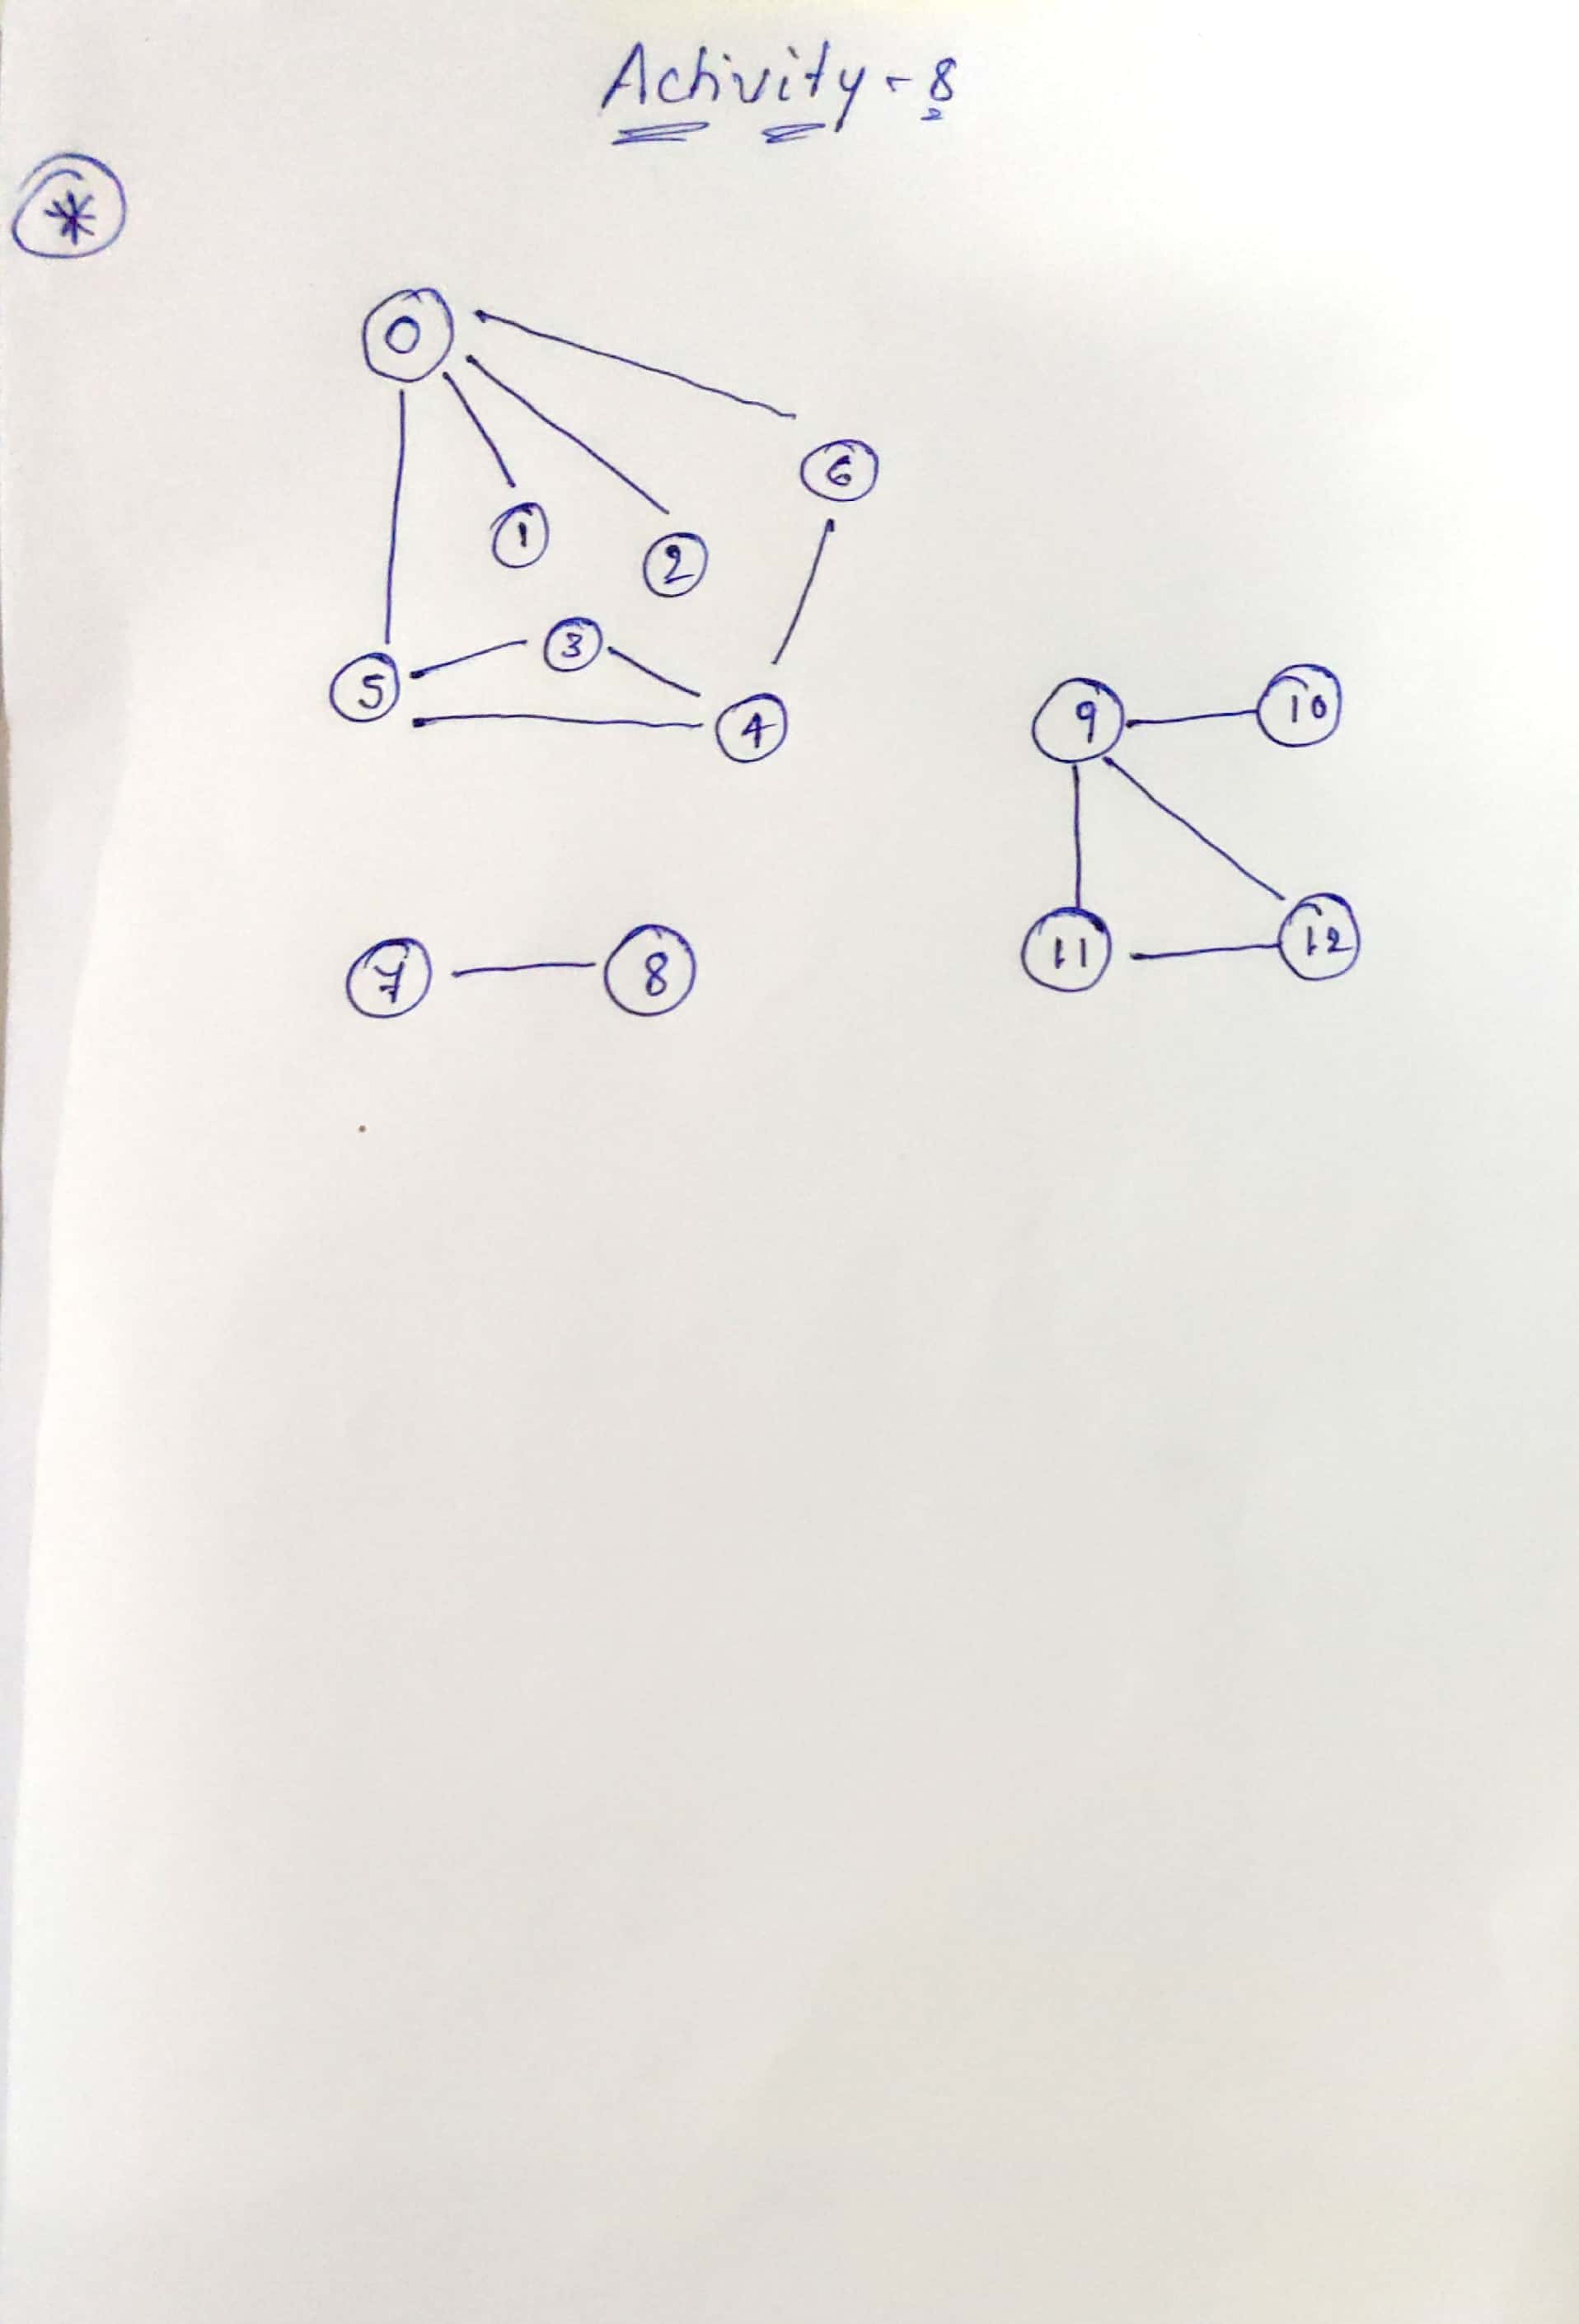 Activity - 8
*
0
6
1
2
3
5
4
9
10
11
12
7
8